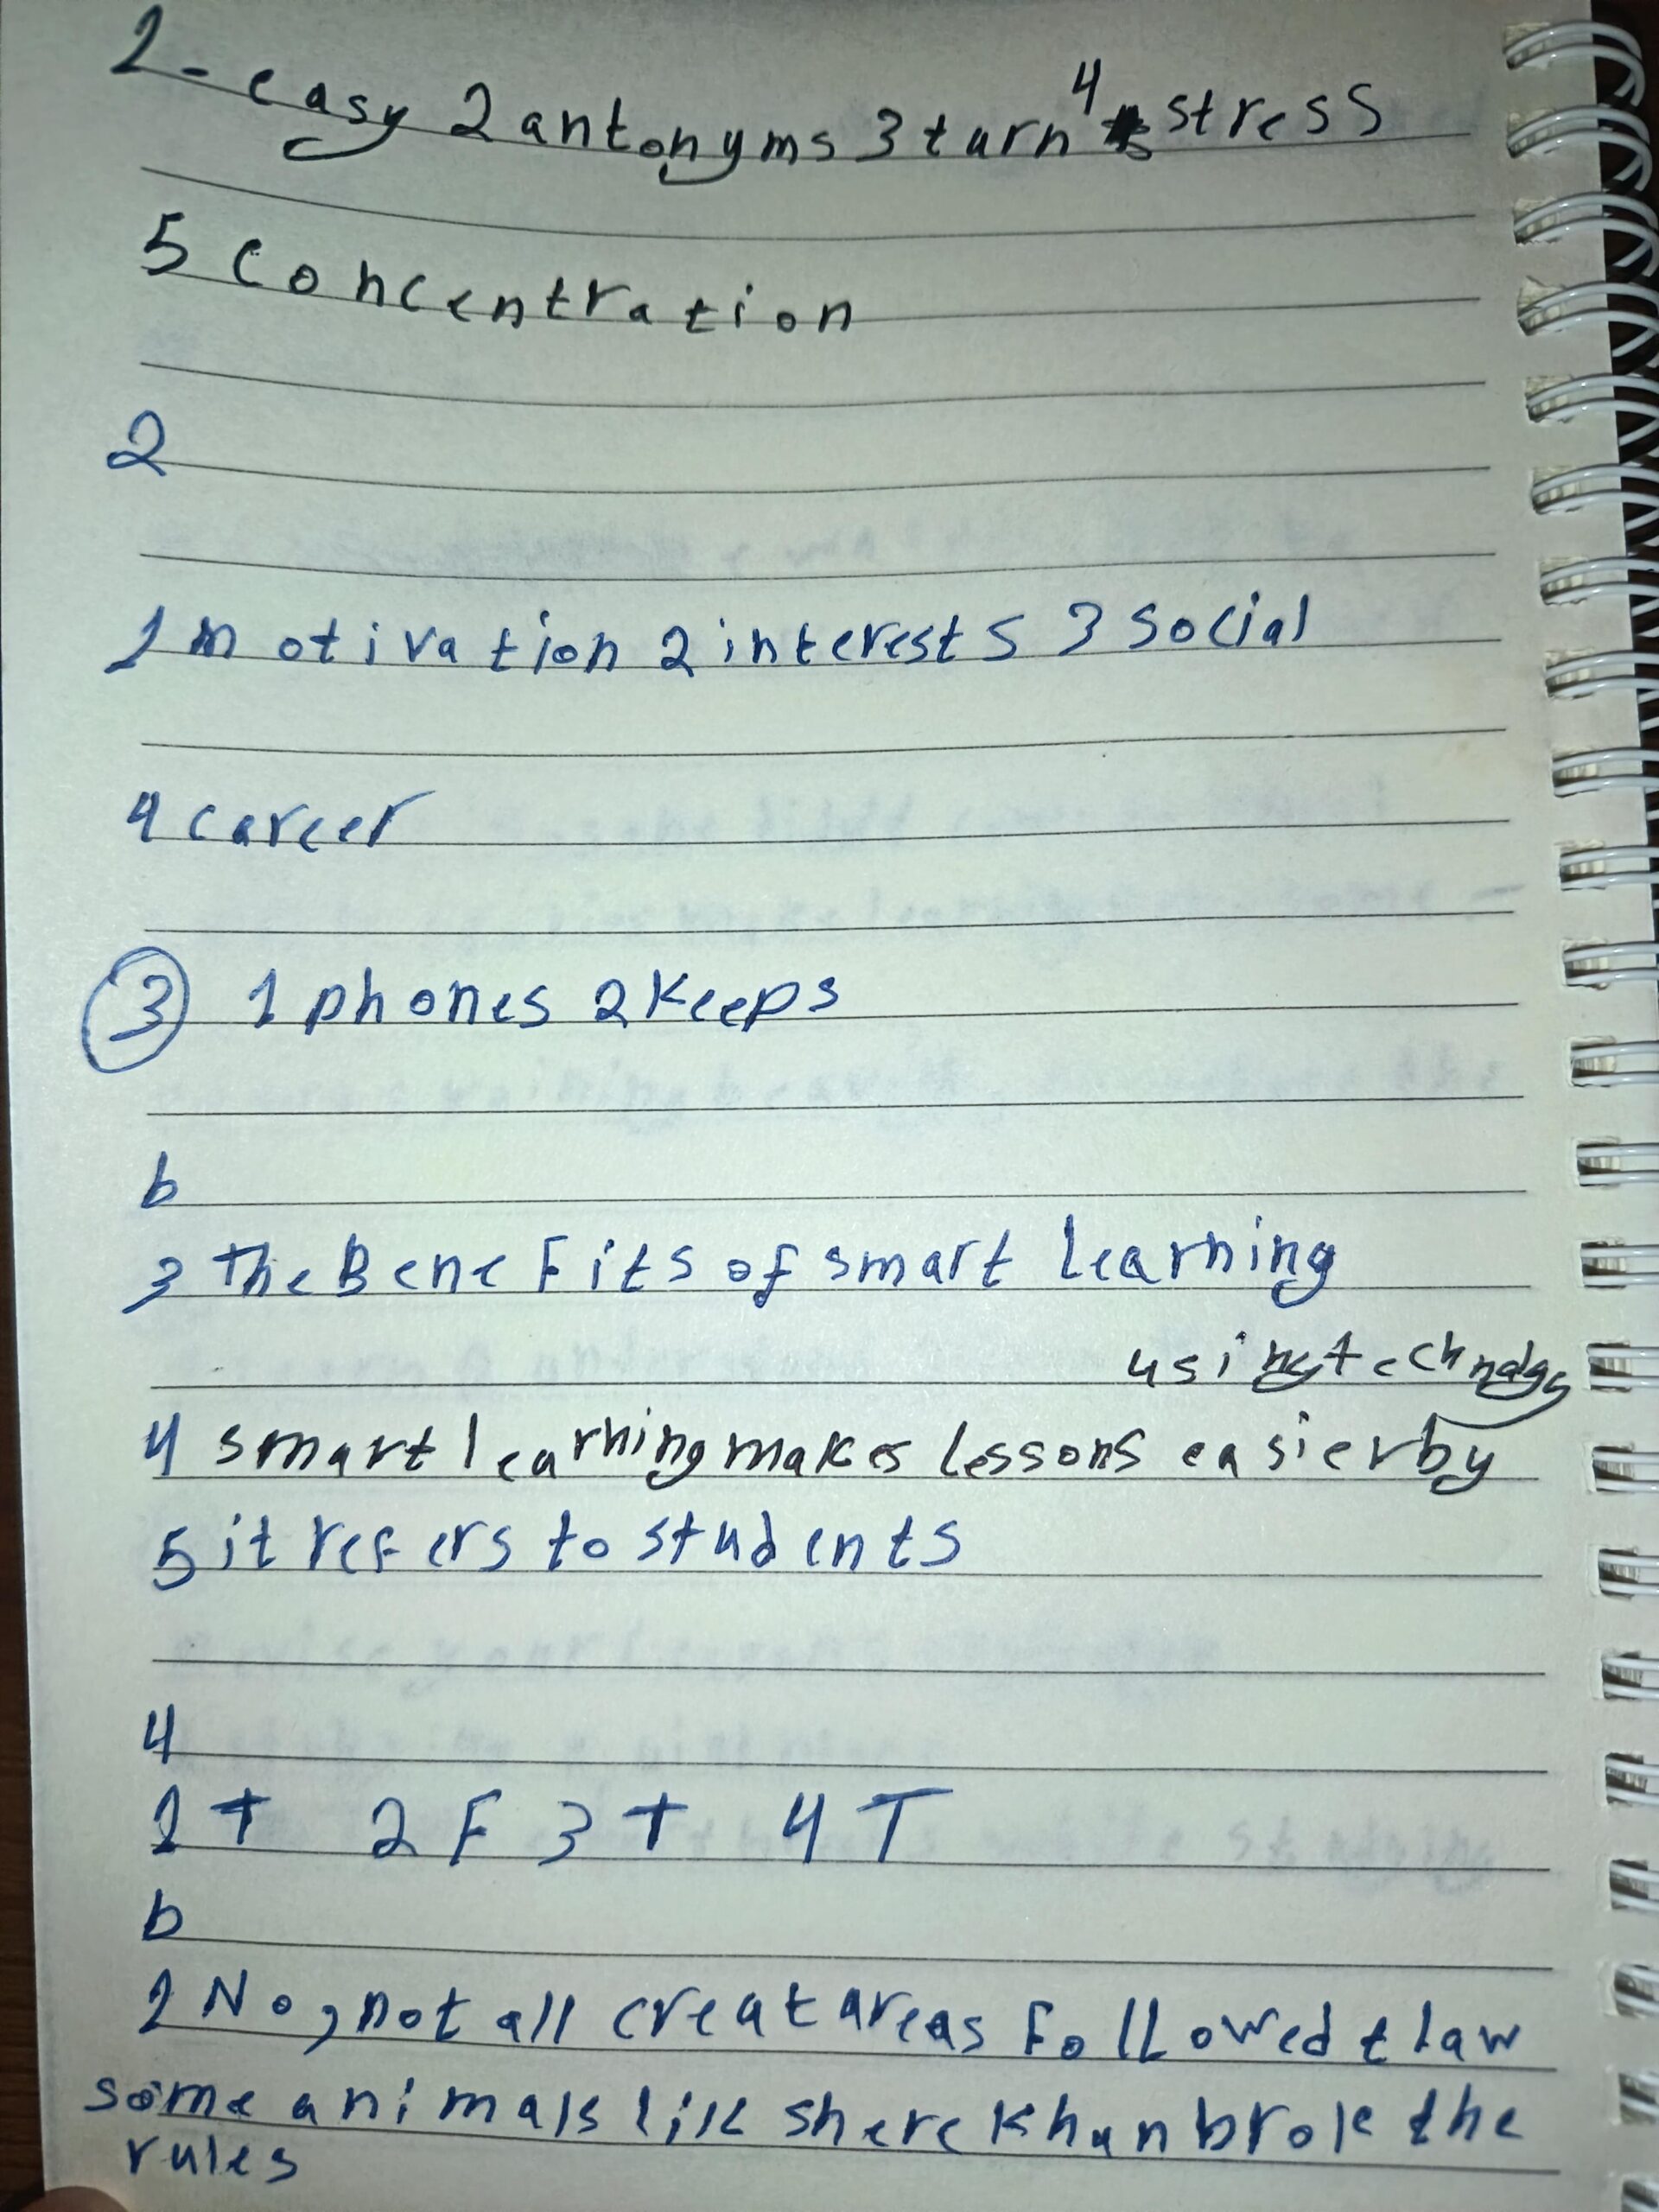 1-easy 2 antonyms 3 turn 4 stress
5 Concentration
2
1 motivation 2 interests 3 social
4 career
3 1 phones 2 keeps
b
3 The BeneFits of smart learning
4 smart learning makes lessons easier by
using technology
5 it reFers to students
4
1 T 2 F 3 T 4 T
b
1 No, not all creatareas Followed law
some animals like shere Khan brok the
rules